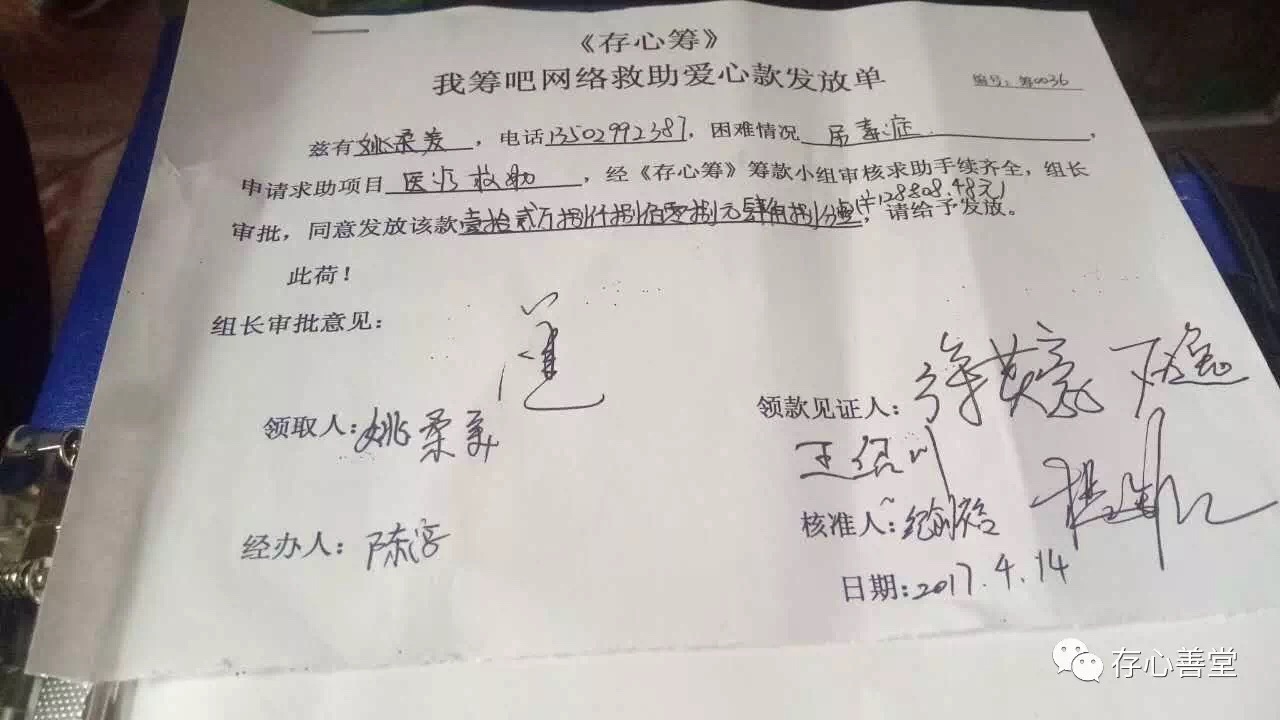 《存心筹》
我筹吧网络救助爱心款发放单
编号：筹0036
兹有姚柔美，电话13502992387，困难情况 尿毒症，
申请求助项目 医疗救助，经《存心筹》筹款小组审核求助手续齐全，组长
审批，同意发放该款壹拾贰万捌仟捌佰零捌元肆角捌分（¥128808.48元），请给予发放。
此荷！
组长审批意见：
领取人：姚柔美
领款见证人：
经办人：陈
核准人：
日期：2017.4.14
存心善堂